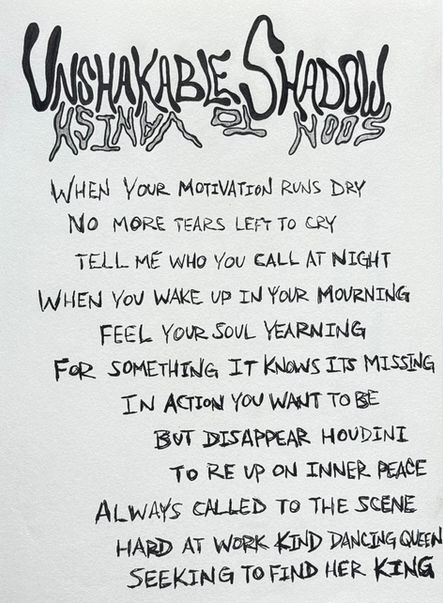 UNSHAKABLE SHADOW
SOON TO VANISH
WHEN YOUR MOTIVATION RUNS DRY
NO MORE TEARS LEFT TO CRY
TELL ME WHO YOU CALL AT NIGHT
WHEN YOU WAKE UP IN YOUR MOURNING
FEEL YOUR SOUL YEARNING
FOR SOMETHING IT KNOWS ITS MISSING
IN ACTION YOU WANT TO BE
BUT DISAPPEAR HOUDINI
TO RE UP ON INNER PEACE
ALWAYS CALLED TO THE SCENE
HARD AT WORK KIND DANCING QUEEN
SEEKING TO FIND HER KING